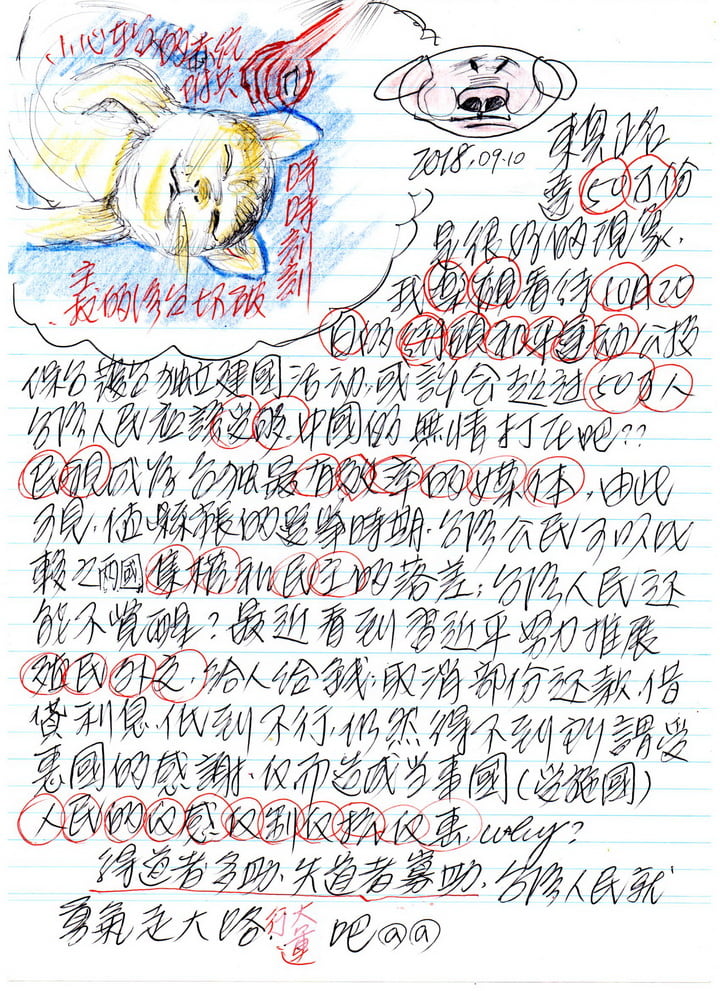 小心
時時刻刻
2018.09.10
東奧正名
50万份
是很好的現象.
我樂觀看待10月20
日的和平運動公投
保台護台獨立建國活動,或許會超過50万人
台灣人民應該受夠中國的無情打压吧??
民視成為台独最有效率的媒体,由此
可見,值的選舉時期.台灣公民可以比
較之兩國集權和民主的落差;台灣人民还
能不覺醒?最近看到習近平努力推展
殖民外交,給人給錢;取消部份还款,借
貸利息,低到不行,仍然得不到所謂受
惠國的感謝.反而造成当事國(受施國)
人民的反感反制反抗反惠,why?
得道者多助.失道者寡助,台灣人民就
勇氣走大路行大運吧@@